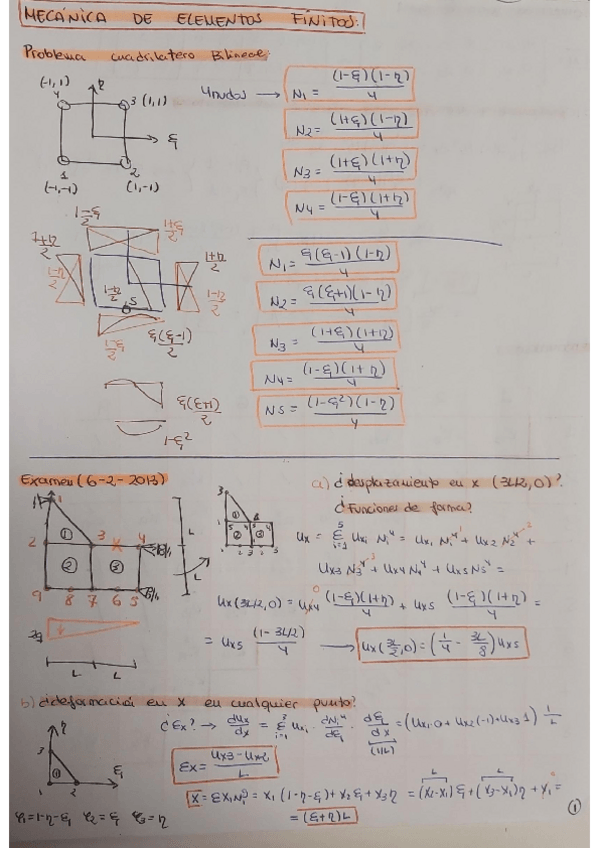 MECÁNICA DE ELEMENTOS FINITOS:
Problema cuadrilatero Bilineal:
(-1,1)
4
η
3 (1,1)
ξ
1
2
(-1,-1)
(1,-1)
4 nudos → N1 = (1-ξ)(1-η)/4
N2 = (1+ξ)(1-η)/4
N3 = (1+ξ)(1+η)/4
N4 = (1-ξ)(1+η)/4
1-ξ/2
1+ξ/2
1+η/2
1-η/2
1+η/2
1-η/2
1-η/2
5
1-ξ/2
ξ(ξ-1)/2
ξ(ξ+1)/2
1-ξ²
N1 = ξ(ξ-1)(1-η)/4
N2 = ξ(ξ+1)(1-η)/4
N3 = (1+ξ)(1+η)/4
N4 = (1-ξ)(1+η)/4
N5 = (1-ξ²)(1-η)/4
Examen (6-2-2013)
1
2
3
4
① ② ③
9 8 7 6 5
L
L
L
L
a) ¿desplazamiento en x (3L/2,0)?
¿Funciones de forma?
ux = Σ uxi Ni⁴ = ux1 N1⁴ + ux2 N2⁴ +
ux3 N3⁴ + ux4 N4⁴ + ux5 N5⁴ =
ux(3L/2,0) = ux4 (1-ξ)(1+η)/4 + ux5 (1-ξ)(1+η)/4 =
= ux5 (1-3L/2)/4 → ux(3L/2,0) = (1/4 - 3L/8) ux5
b) ¿deformación en x en cualquier punto?
η
3
①
1
2
ξ
¿εx? → dux/dx = Σ uxi · dNi/dξ · dξ/dx = (ux1·0 + ux2(-1) + ux3 1) 1/L
(1/L)
εx = ux3 - ux2/L
x = Σxi Ni = x1 (1-η-ξ) + x2 ξ + x3 η = (x2-x1)ξ + (x3-x1)η + x1 =
φ1=1-η-ξ φ2=ξ φ3=η
= (ξ+η)L
①